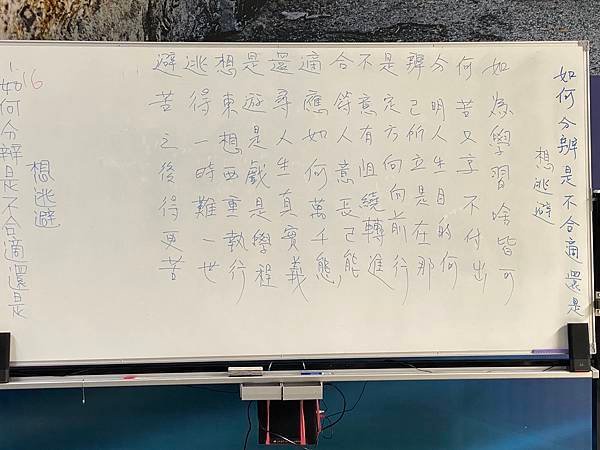 如何分辨是不合適還是
想逃避
如為學習啥皆可
何苦又享不付出
分明人生目的何
辨己所立是在那
是定方向向前行
不意有阻繞轉進
合符人意長己能
適應如何萬千態
還尋人生真實義
是遊是戲是學程
想東想西重執行
逃得一時難一世
避苦之後得更苦
16
如何分辨是不合適還是
想逃避